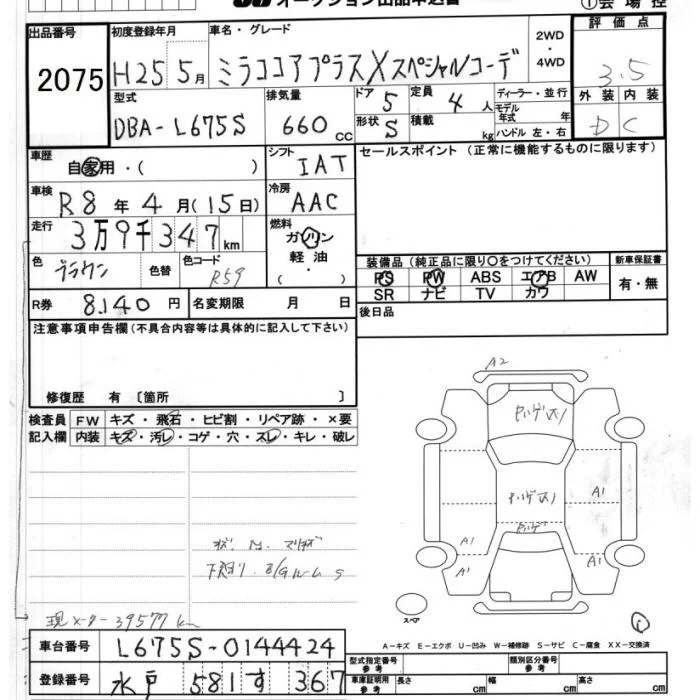 オークション出品申込書
①会場控
出品番号 2075
初度登録年月 H25 5月
車名・グレード ミラココアプラスXスペシャルコーデ
2WD・4WD
評価点 3.5
外装 内装
D C
型式 DBA-L675S
排気量 660 cc
ドア 5
形状 S
定員 4 人
積載 kg
ディーラー・並行
モデル年式 年
ハンドル 左・右
車歴 自家用・( )
シフト IAT
セールスポイント (正常に機能するものに限ります)
車検 R8 年 4 月 (15日)
冷房 AAC
走行 3万9千347 km
燃料 ガソリン 軽油 ・( )
色 ブラウン 色替
色コード R59
装備品 (純正品に限り○をつけてください)
PS PW ABS エアB AW
SR ナビ TV カワ
新車保証書 有・無
R券 8,140 円
名変期限 月 日
後日品
注意事項申告欄 (不具合内容等は具体的に記入して下さい)
修復歴 有 [箇所 ]
検査員記入欄
FW キズ・飛石・ヒビ割・リペア跡・×要
内装 キズ・汚レ・コゲ・穴・スレ・キレ・破レ
A2
A1
A1
A1
A1
スペア
現メーター39577km
A-キズ E-エクボ U-凹み W-補修跡 S-サビ C-腐食 XX-交換済
車台番号 L675S-0144424
登録番号 水戸 581 す 367
型式指定番号 参考
類別区分番号 参考
車庫証明用 参考
長さ cm 幅 cm 高さ cm